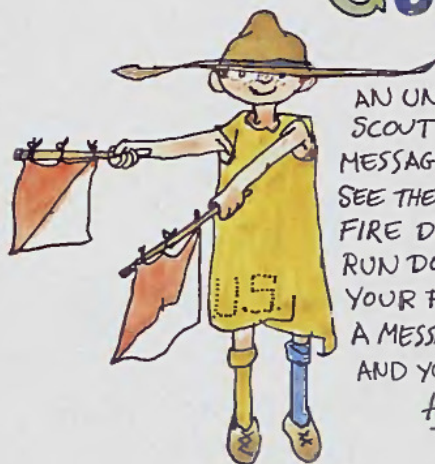 AN UN
SCOUT
MESSAG
SEE THE
FIRE D
RUN DO
YOUR
A MESSA
AND YO
U.S.